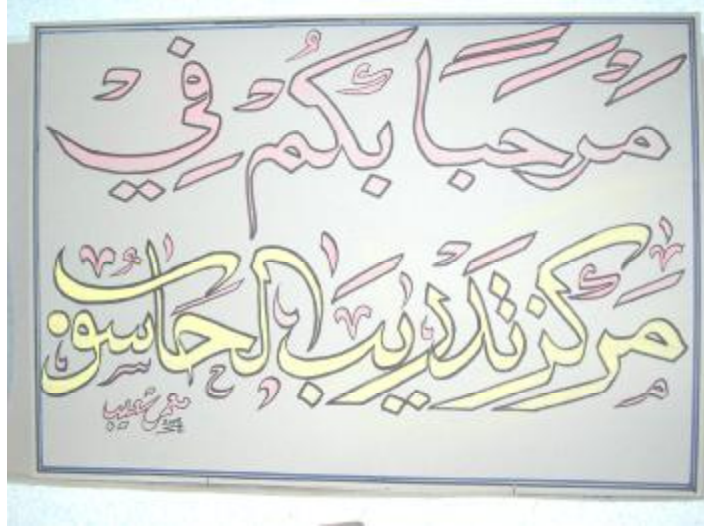 مَرْحَبًا بِكُمْ فِي
مَرْكَز تَدْرِيب الحَاسوب